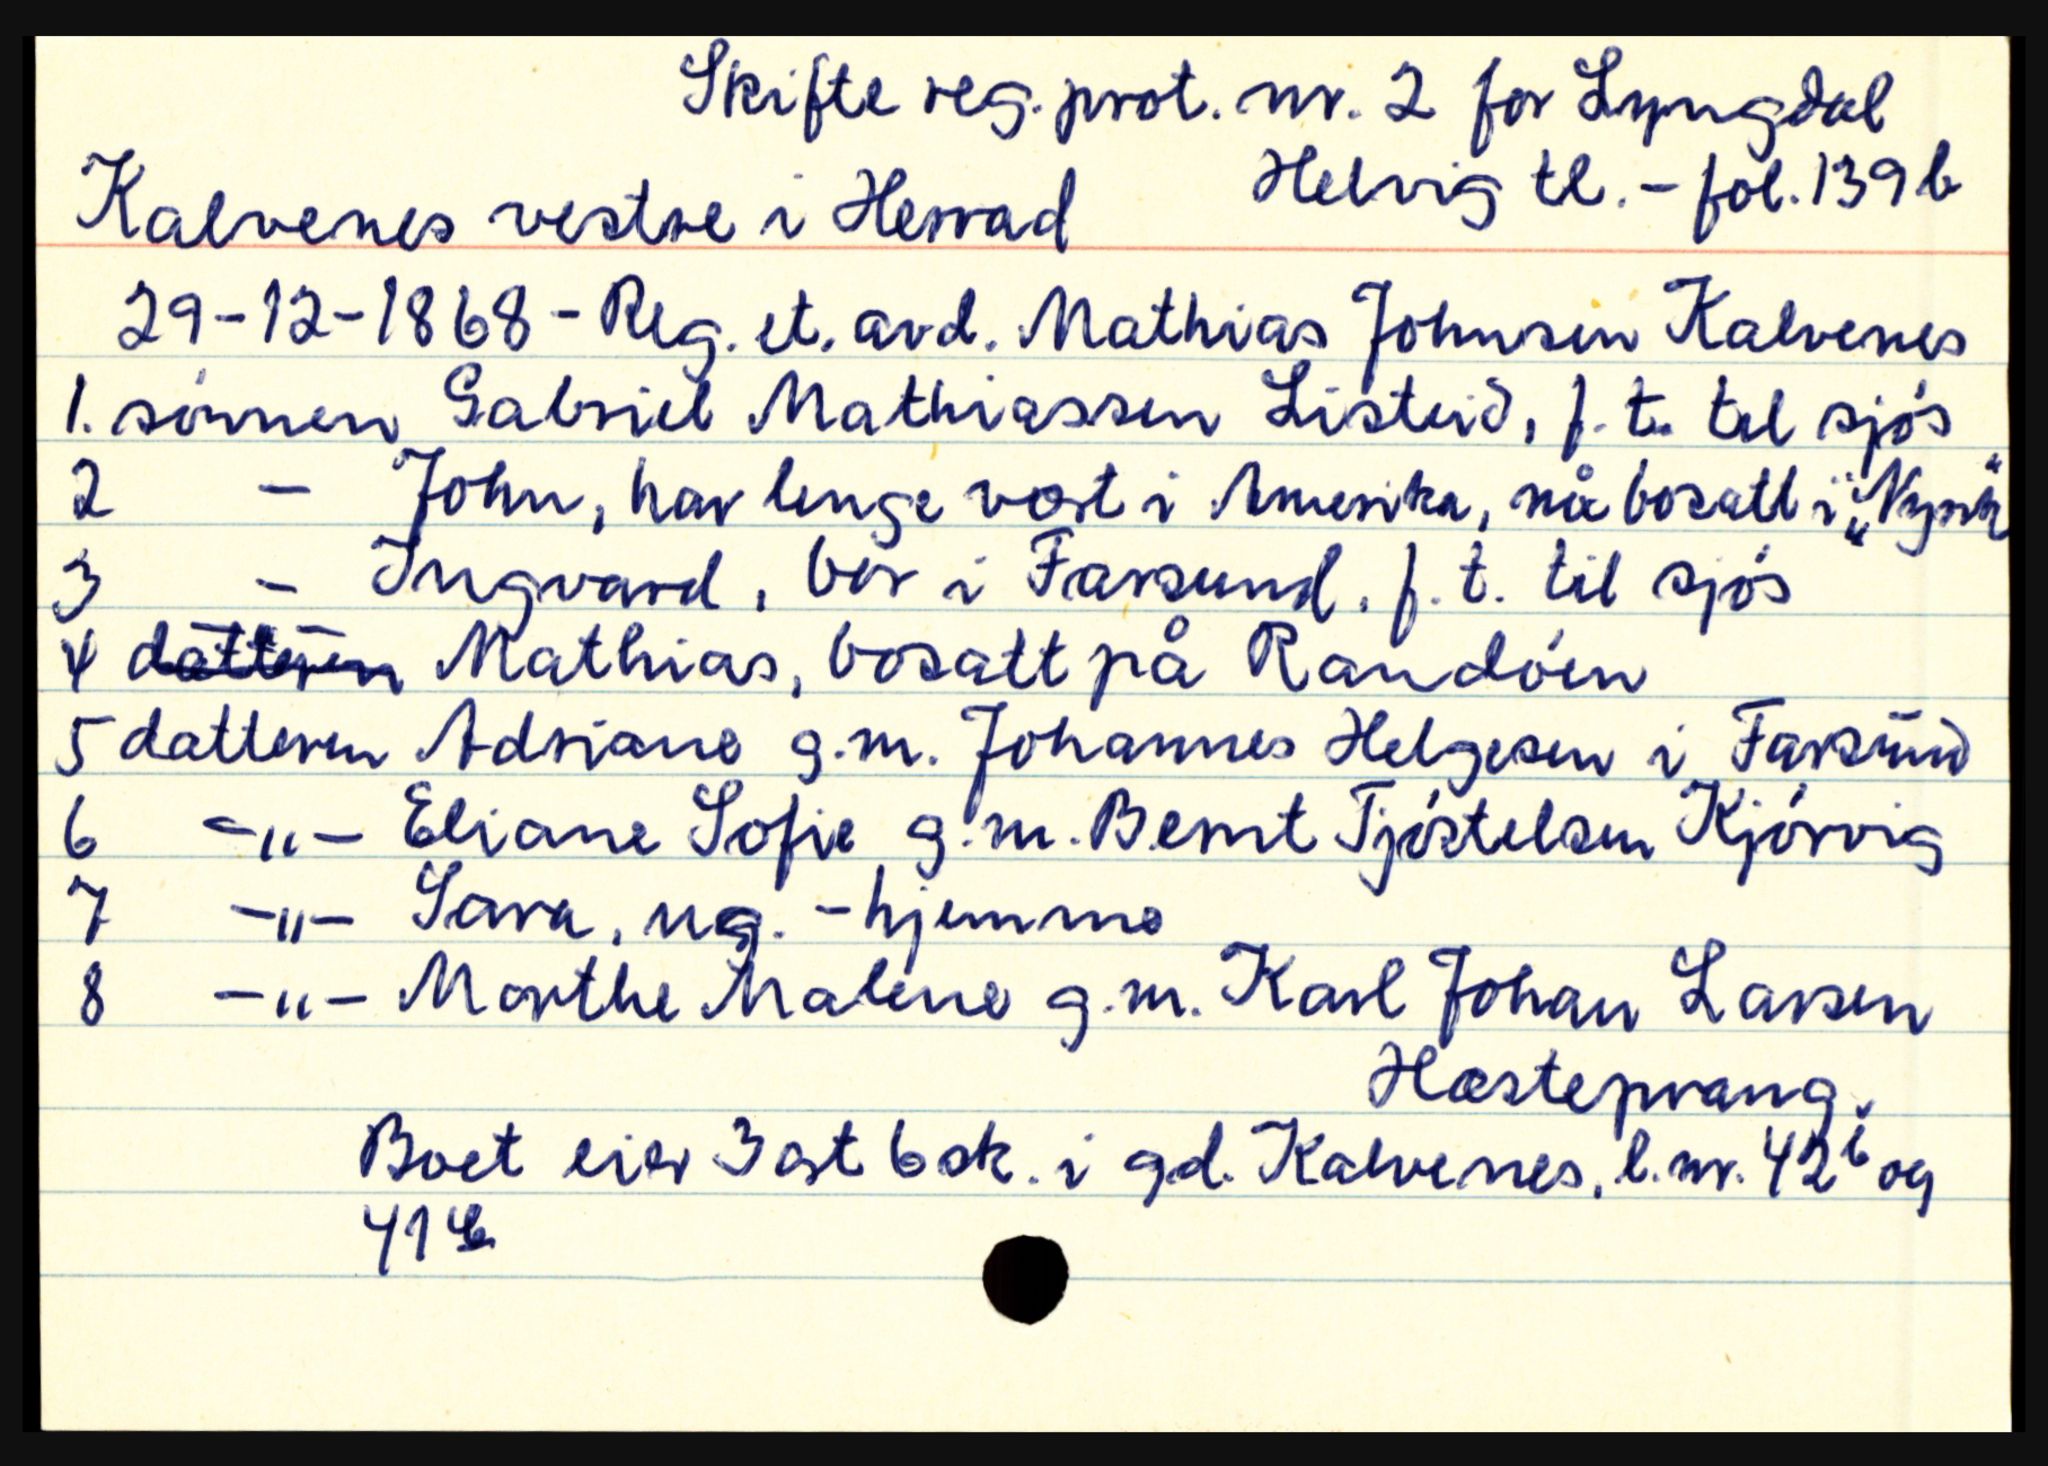 Skifte reg. prot. nr. 2 for Lyngdal
Helvig tl. - fol. 139b
Kalvenes vestre i Herrad
29-12-1868 - Reg. et. avd. Mathias Johnsen Kalvenes
1. sønnen Gabriel Mathiassen Listeid, f. t. til sjøs
2 - John, har lenge vært i Amerika, nå bosatt i "Nyrk"
3 - Ingvard, bor i Farsund, f. t. til sjøs
4 datteren Mathias, bosatt på Randøen
5 datteren Adriane g.m. Johannes Helgesen i Farsund
6 -"- Eliane Sofie g.m. Bernt Tjøstelsen Kjørvig
7 -"- Sara, ug. - hjemme
8 -"- Marthe Malene g.m. Karl Johan Larsen
Hæsteprang.
Boet eier 3 ort 6 sk. i gd. Kalvenes, l. nr. 42b og
41